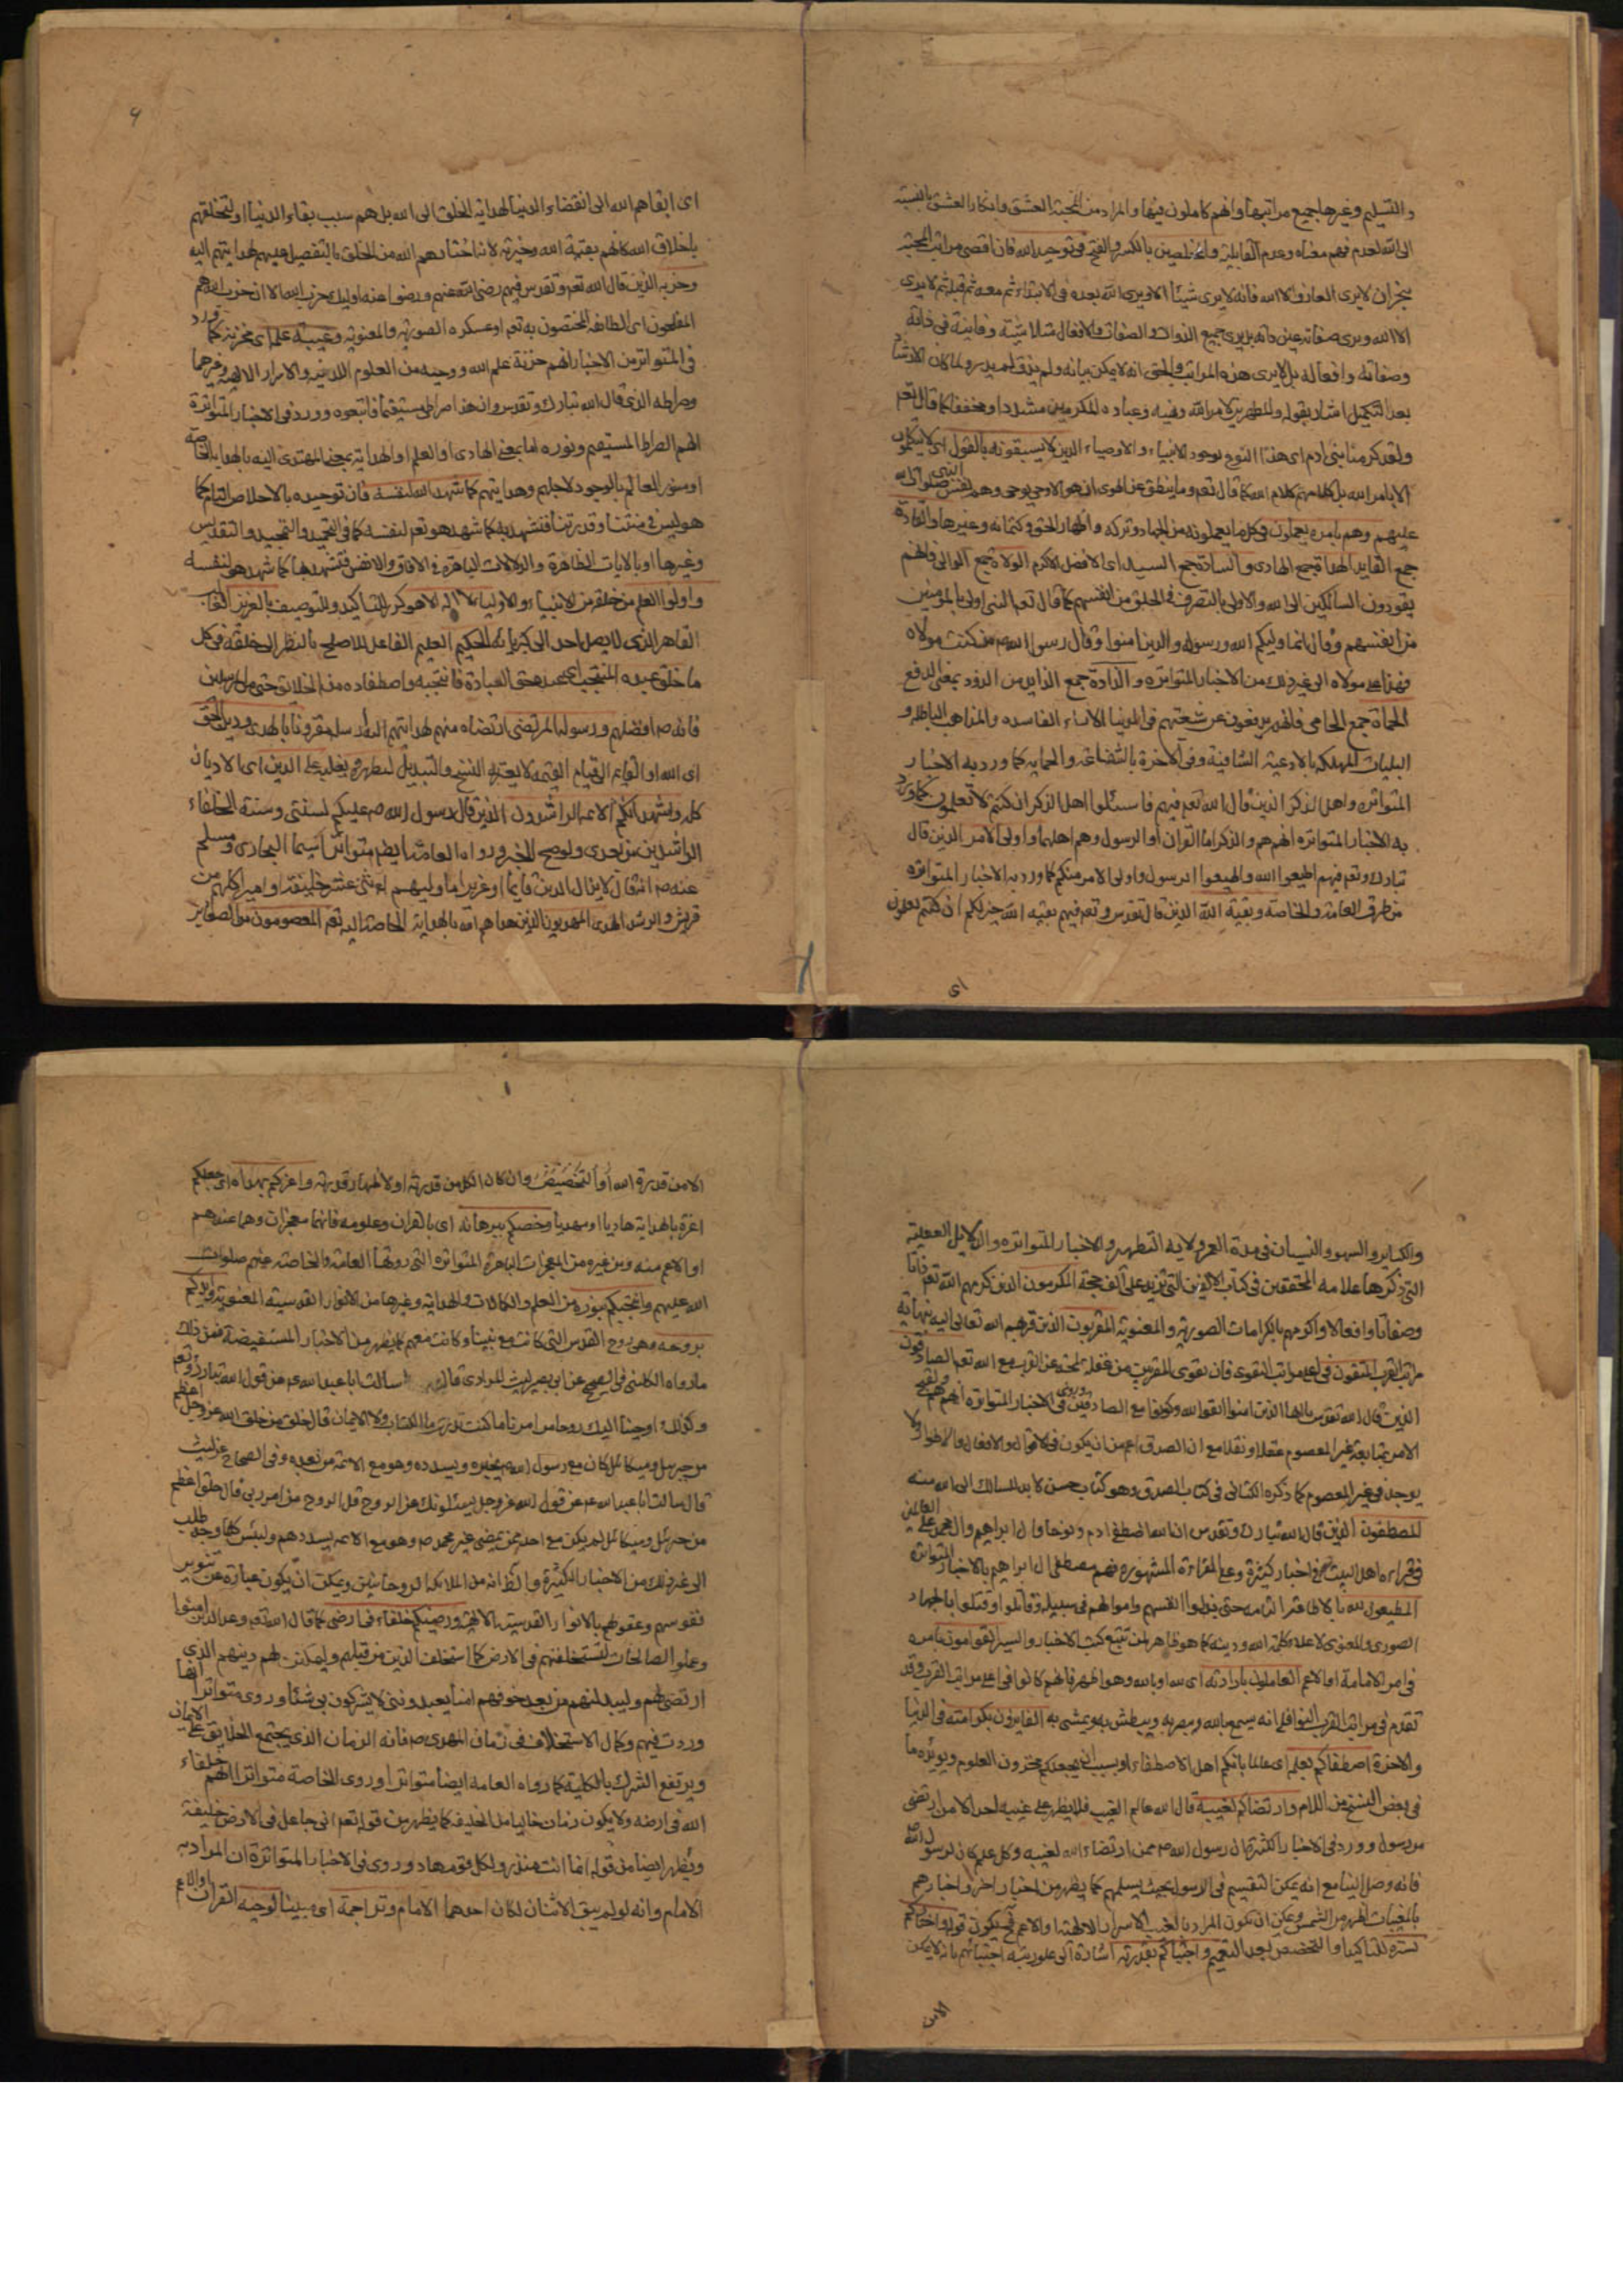 و التسليم وغيرها جميع مراتبها وانهم كاملون فيها والمراد من المحبة العشق وانكار العشق بالنسبة
الى الله لعدم فهم معناه وعدم القابلية والمخلصين بالكسر والفتح في توحيد الله فان اقصى مراتب المحبة
ينجر ان لا يرى العارف الا الله فانه لا يرى شيئا الا ويرى الله بعده في الابتداء ثم معه ثم قبله ثم لا يرى
الا الله ويرى صفاته عين ذاته بل يرى جميع الذوات والصفات والافعال متلاشية وفانية في ذاته
وصفاته وافعاله بل لا يرى هذه المراتب والحق انه لا يمكن بيانه ولم يذق لم يدر ولما كان الارشاد
بعد التكميل اشار بقوله والمظهرين لامر الله ونهيه وعباده المكرمين مشددا ومخففا كما قال تعم
ولقد كرمنا بني ادم اى هذا النوع بوجود الانبياء والاوصياء الذين لا يسبقونه بالقول اى لا يتكلمون
الا بامر الله بل كلامهم كلام الله كما قال تعم وما ينطق عن الهوى ان هو الا وحي يوحى وهم نفس النبي صلوات الله
عليهم وهم بامره يعملون في كل ما يعملونه من الجهاد وتركه واظهار الحق وكتمانه وغيرها والقادة
جمع القايد الهداة جمع الهادى والسادة جمع السيد اى الافضل الاكرم الولاة جمع الوالى فانهم
يقودون السالكين الى الله والاولى بالتصرف في الخلق من انفسهم كما قال تعم النبي اولى بالمؤمنين
من انفسهم وقال انما وليكم الله ورسوله والذين امنوا وقال رسول الله ص من كنت مولاه
فهذا على مولاه الى غير ذلك من الاخبار المتواتره والذادة جمع الذايد من الذود بمعنى الدفع
الحماة جمع الحامى فانهم يدفعون عن شيعتهم في الدنيا الاراء الفاسده والمذاهب الباطله و
البليات المهلكه بالادعية الشافية وفي الاخرة بالشفاعه والحمايه كما ورد به الاخبار
المتواتره واهل الذكر الذين قال الله تعم فيهم فاسئلوا اهل الذكر ان كنتم لا تعلمون كما ورد
به الاخبار المتواتره انهم هم والذكر اما القران او الرسول وهم اهلهما واولى الامر الذين قال
تبارك وتعم فيهم اطيعوا الله واطيعوا الرسول واولى الامر منكم كما ورد به الاخبار المتواتره
من طرق العامه والخاصه وبقية الله الذين قال تقدس وتعم فيهم بقيه الله خير لكم ان كنتم تعلمون
اى
اى ابقاهم الله الى انقضاء الدنيا لهداية الخلق الى الله بل هم سبب بقاء الدنيا او لتخلقهم
باخلاق الله كانهم بقية الله وخيرته لانه اختارهم الله من الخلق بالتفصيل عليهم لهدايتهم اليه
وحزبه الذين قال الله تعم وتقدس فيهم رضى الله عنهم ورضوا عنه اوليك حزب الله الا ان حزب الله هم
المفلحون اى الطائفه المختصون به تعم او عسكره الصورية والمعنوية وعيبة علمه اى مخزنه كما ورد
في المتواتر من الاخبار انهم خزنة علم الله ووحيه من العلوم اللدنيه والاسرار الالهية وغيرهما
وصراطه الذى قال الله تبارك وتقدس وان هذا صراطى مستقيما فاتبعوه وورد في الاخبار المتواترة
انهم الصراط المستقيم ونوره اما بمعنى الهادى او العلم او الهداية بمعنى المهتدى اليه بالهداية الخاصة
او منور العالم بالوجود لاجلهم وهدايتهم كما شهد الله لنفسه فان توحيده بالاخلاص التام كما
هو ليس في منتنا وقدرتنا فنشهد به كما شهد هو تعم لنفسه كما في التحميد والتمجيد والتقديس
وغيرها او بالايات الظاهرة والدلالات الباهرة في الافاق والانفس فنشهد بها كما شهد هي لنفسه
واولوا العلم من خلقه من الانبياء والاولياء لا اله الا هو كرر للتاكيد وللتوصيف بالعزيز الغالب
القاهر الذى لا يصل احد الى كبريائه الحكيم العليم الفاعل للاصلح بالنظر الى خلقه في كل
ما خلق عبده المنتجب اى عبده حق العبادة فانتجبه واصطفاه من الخلايق حتى من المرسلين
فانه ص افضلهم ورسوله المرتضى ارتضاه منهم لهدايتهم ارسله مقرونا بالهدى ودين الحق
اى الله او القايم الى قيام القيمه لا يعتريه النسخ والتبديل ليظهره ويغلبه على الدين اى الاديان
كله واشهد انكم الائمه الراشدون الذين قال رسول الله ص عليكم بسنتى وسنة الخلفاء
الراشدين من بعدى ولو صح الخبر ورواه العامة ايضا متواترا سيما البخارى ومسلم
عنه ص انه قال لا يزال الدين قايما او عزيزا ما وليهم اثنى عشر خليفة او اميرا كلهم من
قريش والرشد الهدى المهديون الذين هداهم الله بالهداية الخاصة اليه تعم المعصومون من الصغاير
والكباير والسهو والنسيان في مدة العمر ولاية التطهير والاخبار المتواتره والدلايل العقليه
التى ذكرها علامه المحققين في كتاب الالفين التى تزيد على الف حجة المكرمون الذين كرمهم الله تعم ذاتا
وصفاتا وافعالا واكرمهم بالكرامات الصورية والمعنوية المقربون الذين قربهم الله تعالى اليه بنهاية
مراتب القرب المتقون في اعلى مراتب التقوى فان تقوى المقربين من غفله لمحة عن القرب مع الله تعم الصادقون
الذين قال الله تقدس يا ايها الذين امنوا اتقوا الله وكونوا مع الصادقين وروى في الاخبار المتواتره انهم هم
الامر بمتابعة غير المعصوم عقلا ونقلا مع ان الصدق اعم من ان يكون في الاقوال والافعال والاطوار ولا
يوجد في غير المعصوم كما ذكره الكاشانى في كتاب الصدق وهو كتاب حسن لابد للسالك الى الله منه
المصطفون الذين قال الله تبارك وتقدس ان الله اصطفى ادم ونوحا وال ابراهيم وال عمران على العالمين
في قراءه اهل البيت ع في اخبار كثيرة وعلى القراءة المشهورة فهم مصطفى ال ابراهيم بالاخبار المتواتره
المطيعون لله بالاطاعة التامه حتى بذلوا انفسهم واموالهم في سبيله وقاتلوا وقتلوا بالجهاد
الصورى والمعنوى لاعلاء كلمة الله ودينه كما هو ظاهر لمن تتبع كتب الاخبار والسير القوامون بامره
في امر الامامة او الاعم العاملون بارادته اى لله او بالله وهو اظهر فانهم كانوا في اعلى مراتب القرب وقد
تقدم في مراتب القرب النوافل انه يسمع بالله ويبصر به ويبطش به ويمشى به الفايزون بكرامته في الدنيا
والاخرة اصطفاكم بعلمه اى عالما بانكم اهل الاصطفاء او بسبب ان يجعلكم مخزون العلوم ويؤيده ما
في بعض النسخ من اللام وارتضاكم لغيبه قال الله عالم الغيب فلا يظهر على غيبه احدا الا من ارتضى
من رسول وورد في الاخبار الكثيرة ان رسول الله ص ممن ارتضاه الله لغيبه وكل علم كان لرسول الله
فانه وصل الينا مع انه يمكن التقسيم في الرسول بحيث يشملهم كما يظهر من اخبار اخر واخبارهم
بالمغيبات اظهر من الشمس ويمكن ان يكون المراد بالغيب الاسرار الالهية او الاعم فيكون قوله واختاركم
لسره للتاكيد او التخصيص بعد التعميم واجتباكم بقدرته اشارة الى علو رتبه اجتبائهم بانه لا يمكن
الامن
الا من قدرة الله او التخصيص وان كان الكل من قدرته او لاظهار قدرته واعزكم بهداه اى جعلكم
اعزة بالهداية هاديا او مهديا وخصكم ببرهانه اى بالقران وعلومه فانهما معجزات وهما عندهم
او الاعم منه ومن غيره من المعجزات الباهرة المتواترة التى روتها العامة والخاصة عنهم صلوات
الله عليهم وانتجبكم بنوره من العلم والكمالات والهداية وغيرها من الانوار القدسية المعنوية وايدكم
بروحه وهى روح القدس التى كانت مع نبينا وكانت معهم كما يظهر من الاخبار المستفيضة فمن ذلك
ما رواه الكلينى في الصحيح عن ابى بصير ليث المرادى قال سالت ابا عبد الله ع عن قول الله تبارك وتعم
وكذلك اوحينا اليك روحا من امرنا ما كنت تدرى ما الكتاب ولا الايمان قال خلق من خلق الله عز وجل اعظم
من جبريل وميكائيل كان مع رسول الله ص يخبره ويسدده وهو مع الائمة من بعده وفي الصحاح عن ليث
قال سالت ابا عبد الله ع عن قول الله عز وجل يسئلونك عن الروح قل الروح من امر ربى قال خلق اعظم
من جبرئيل وميكائيل لم يكن مع احد ممن مضى غير محمد ص وهو مع الائمة يسددهم وليس كلما طلب وجد
الى غير ذلك من الاخبار الكثيرة والظ انه من الملائكة الروحانيين ويمكن ان يكون عبارة عن تنوير
نفوسهم وعقولهم بالانوار القدسية الالهية ورضيكم خلفاء في ارضه كما قال الله تعم وعد الله الذين امنوا
وعملوا الصالحات ليستخلفنهم في الارض كما استخلف الذين من قبلهم وليمكنن لهم دينهم الذى
ارتضى لهم وليبدلنهم من بعد خوفهم امنا يعبدوننى لا يشركون بى شيئا وروى متواترا انها
وردت فيهم وكمال الاستخلاف في زمان المهدى ص فانه الزمان الذى يجتمع الخلايق على الايمان
ويرتفع الشرك بالكلية كما رواه العامه ايضا متواترا وروى الخاصة متواترا انهم خلفاء
الله في ارضه ولا يكون زمان خاليا من الخليفه كما يظهر من قوله تعم انى جاعل في الارض خليفة
ويظهر ايضا من قوله انما انت منذر ولكل قوم هاد وروى في الاخبار المتواترة ان المراد به
الامام وانه لو لم يبق الا اثنان لكان احدهما الامام وتراجمة اى مبينا لوحيه القران او الاعم